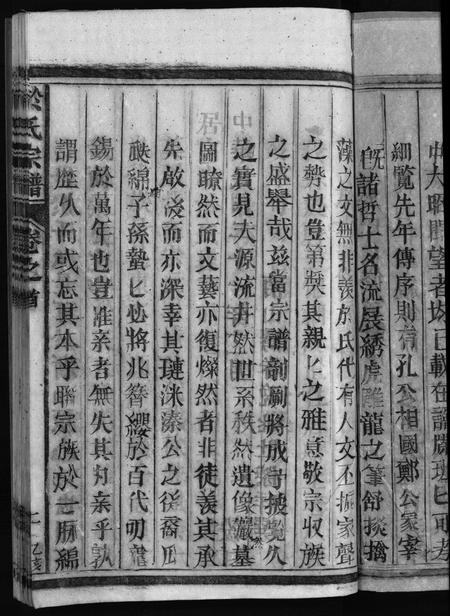 中大昭聞望者炭已載在譜牒班匕可考
細覧先年傳序則有孔公相國鄭公冢宰
暨諸哲士名流展綉虎雕龍之筆舒掞擒
藻之文無非羨於氏代有人文丕振家聲
之勢也豈第獎其親匕之雅意敬宗収族
之盛舉哉兹當宗譜剞劂將成予披覧久
之實見夫源流井然世系秩然遺像嚴然墓
圖瞭然而文藝亦復燦然者非徒羨其承
先啟後而亦深幸其璉洙溱公之後裔瓜
瓞綿綿子孫蟄匕必將兆簪纓於百代叨寵
錫於萬年也豈准亲者無失其为亲乎孰
謂歷久而或忘其本乎聯宗族於一脈綿
於氏宗譜
卷之首
居中